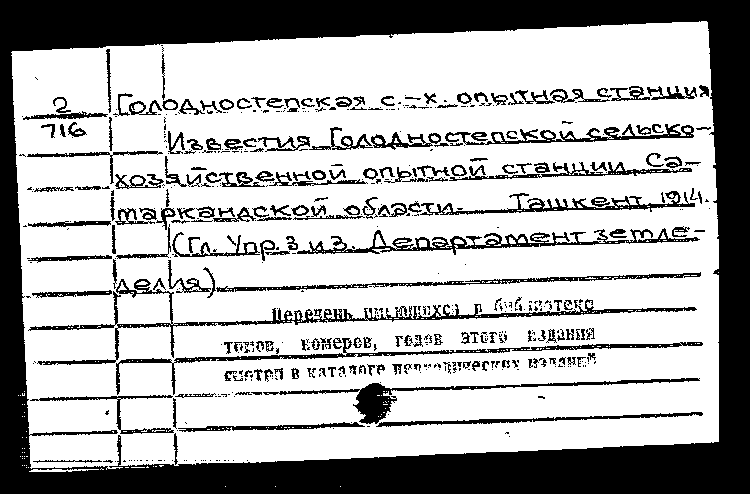 2 Голодностепская с.-х. опытная станция
716
Известия Голодностепской сельско-
хозяйственной опытной станции, Са-
маркандской области. Ташкент, 1914.
(Гл. Упр. З. и З. Департамент земле-
делия).
Перечень имеющихся в библиотеке
томов, номеров, годов этого издания
смотри в каталоге периодических изданий